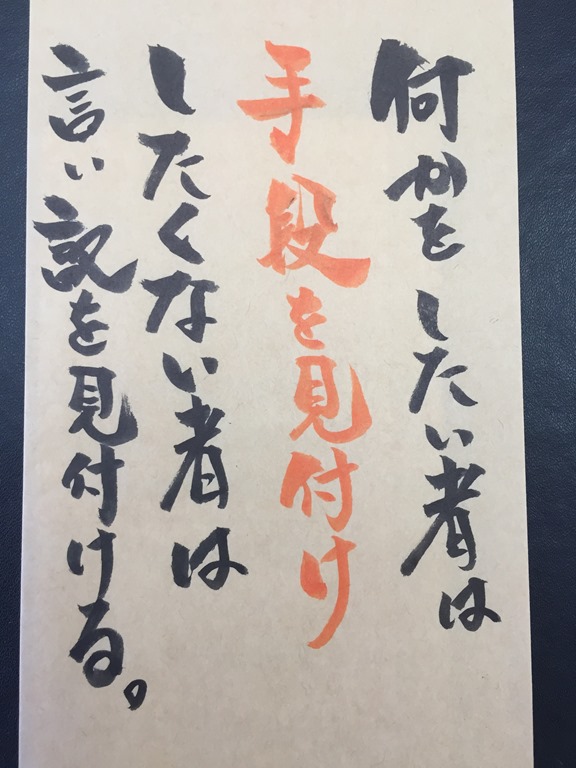 何かをしたい者は
手段を見付け
したくない者は
言い訳を見付ける。